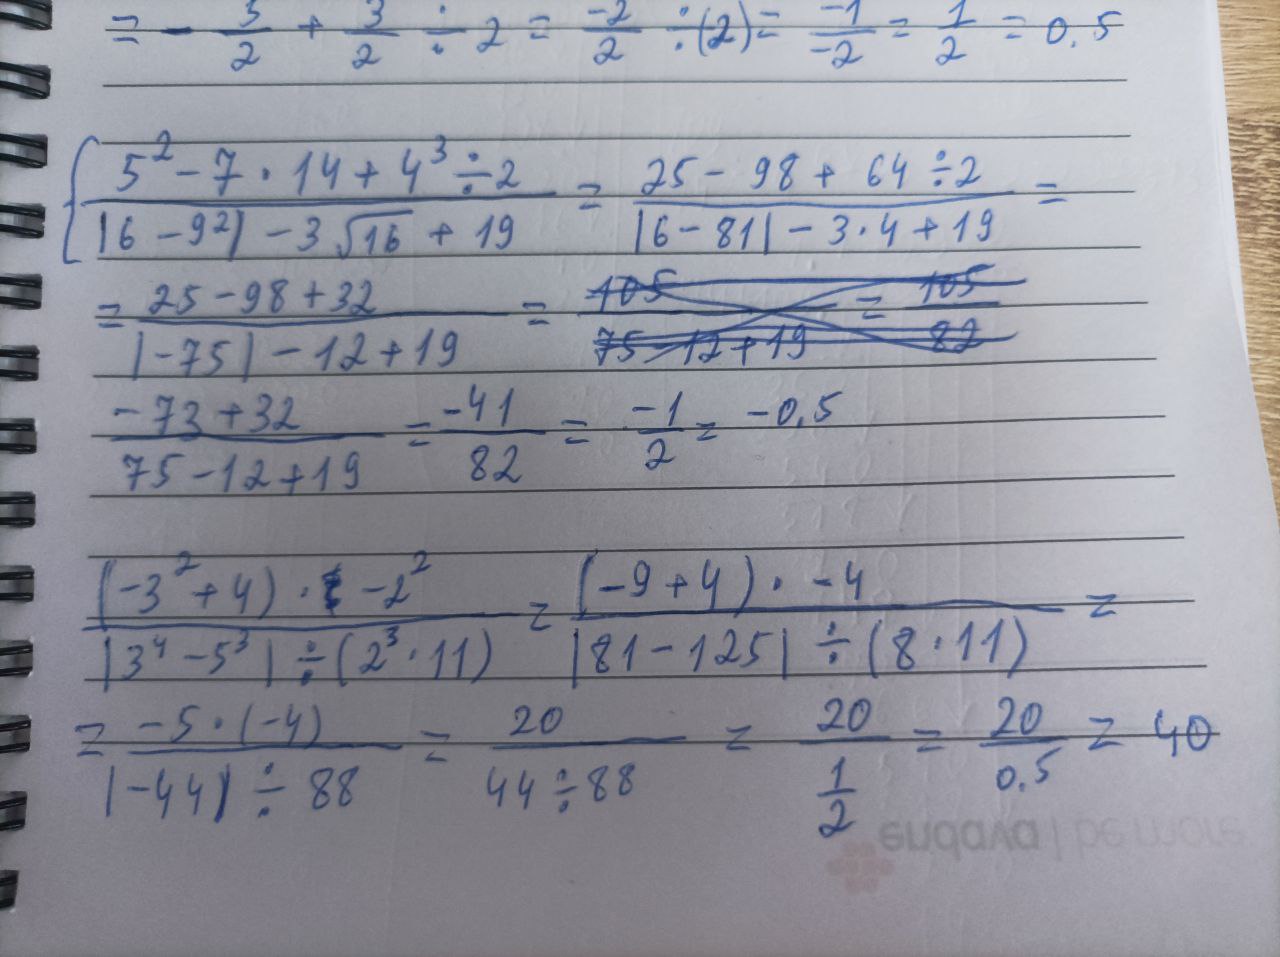 = - 5/2 + 3/2 ÷ 2 = -2/2 ÷ (2) = -1/-2 = 1/2 = 0.5
5² - 7 · 14 + 4³ ÷ 2 / |6 - 9²| - 3√16 + 19 = 25 - 98 + 64 ÷ 2 / |6 - 81| - 3 · 4 + 19 =
= 25 - 98 + 32 / |-75| - 12 + 19 = 105 / 75 - 12 + 19 = 105 / 82
-73 + 32 / 75 - 12 + 19 = -41/82 = -1/2 = -0.5
(-3² + 4) · -2² / |3⁴ - 5³| ÷ (2³ · 11) = (-9 + 4) · -4 / |81 - 125| ÷ (8 · 11) =
= -5 · (-4) / |-44| ÷ 88 = 20 / 44 ÷ 88 = 20 / 1/2 = 20 / 0.5 = 40
endava | be more